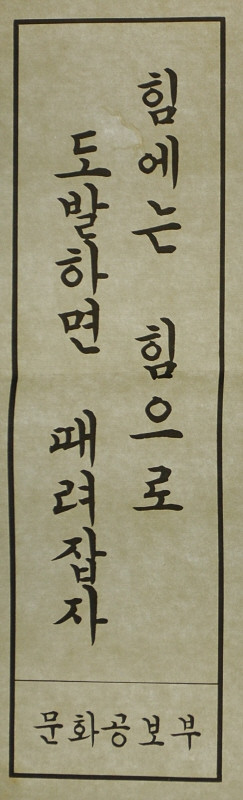 힘에는 힘으로
도발하면 때려잡자
문화공보부